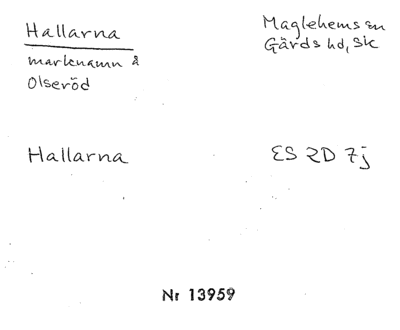 Hallarna
Maglehems sn
Gärds hd, Sk
marknamn å
Olseröd
Hallarna
ES 2D 7j
Nr 13959